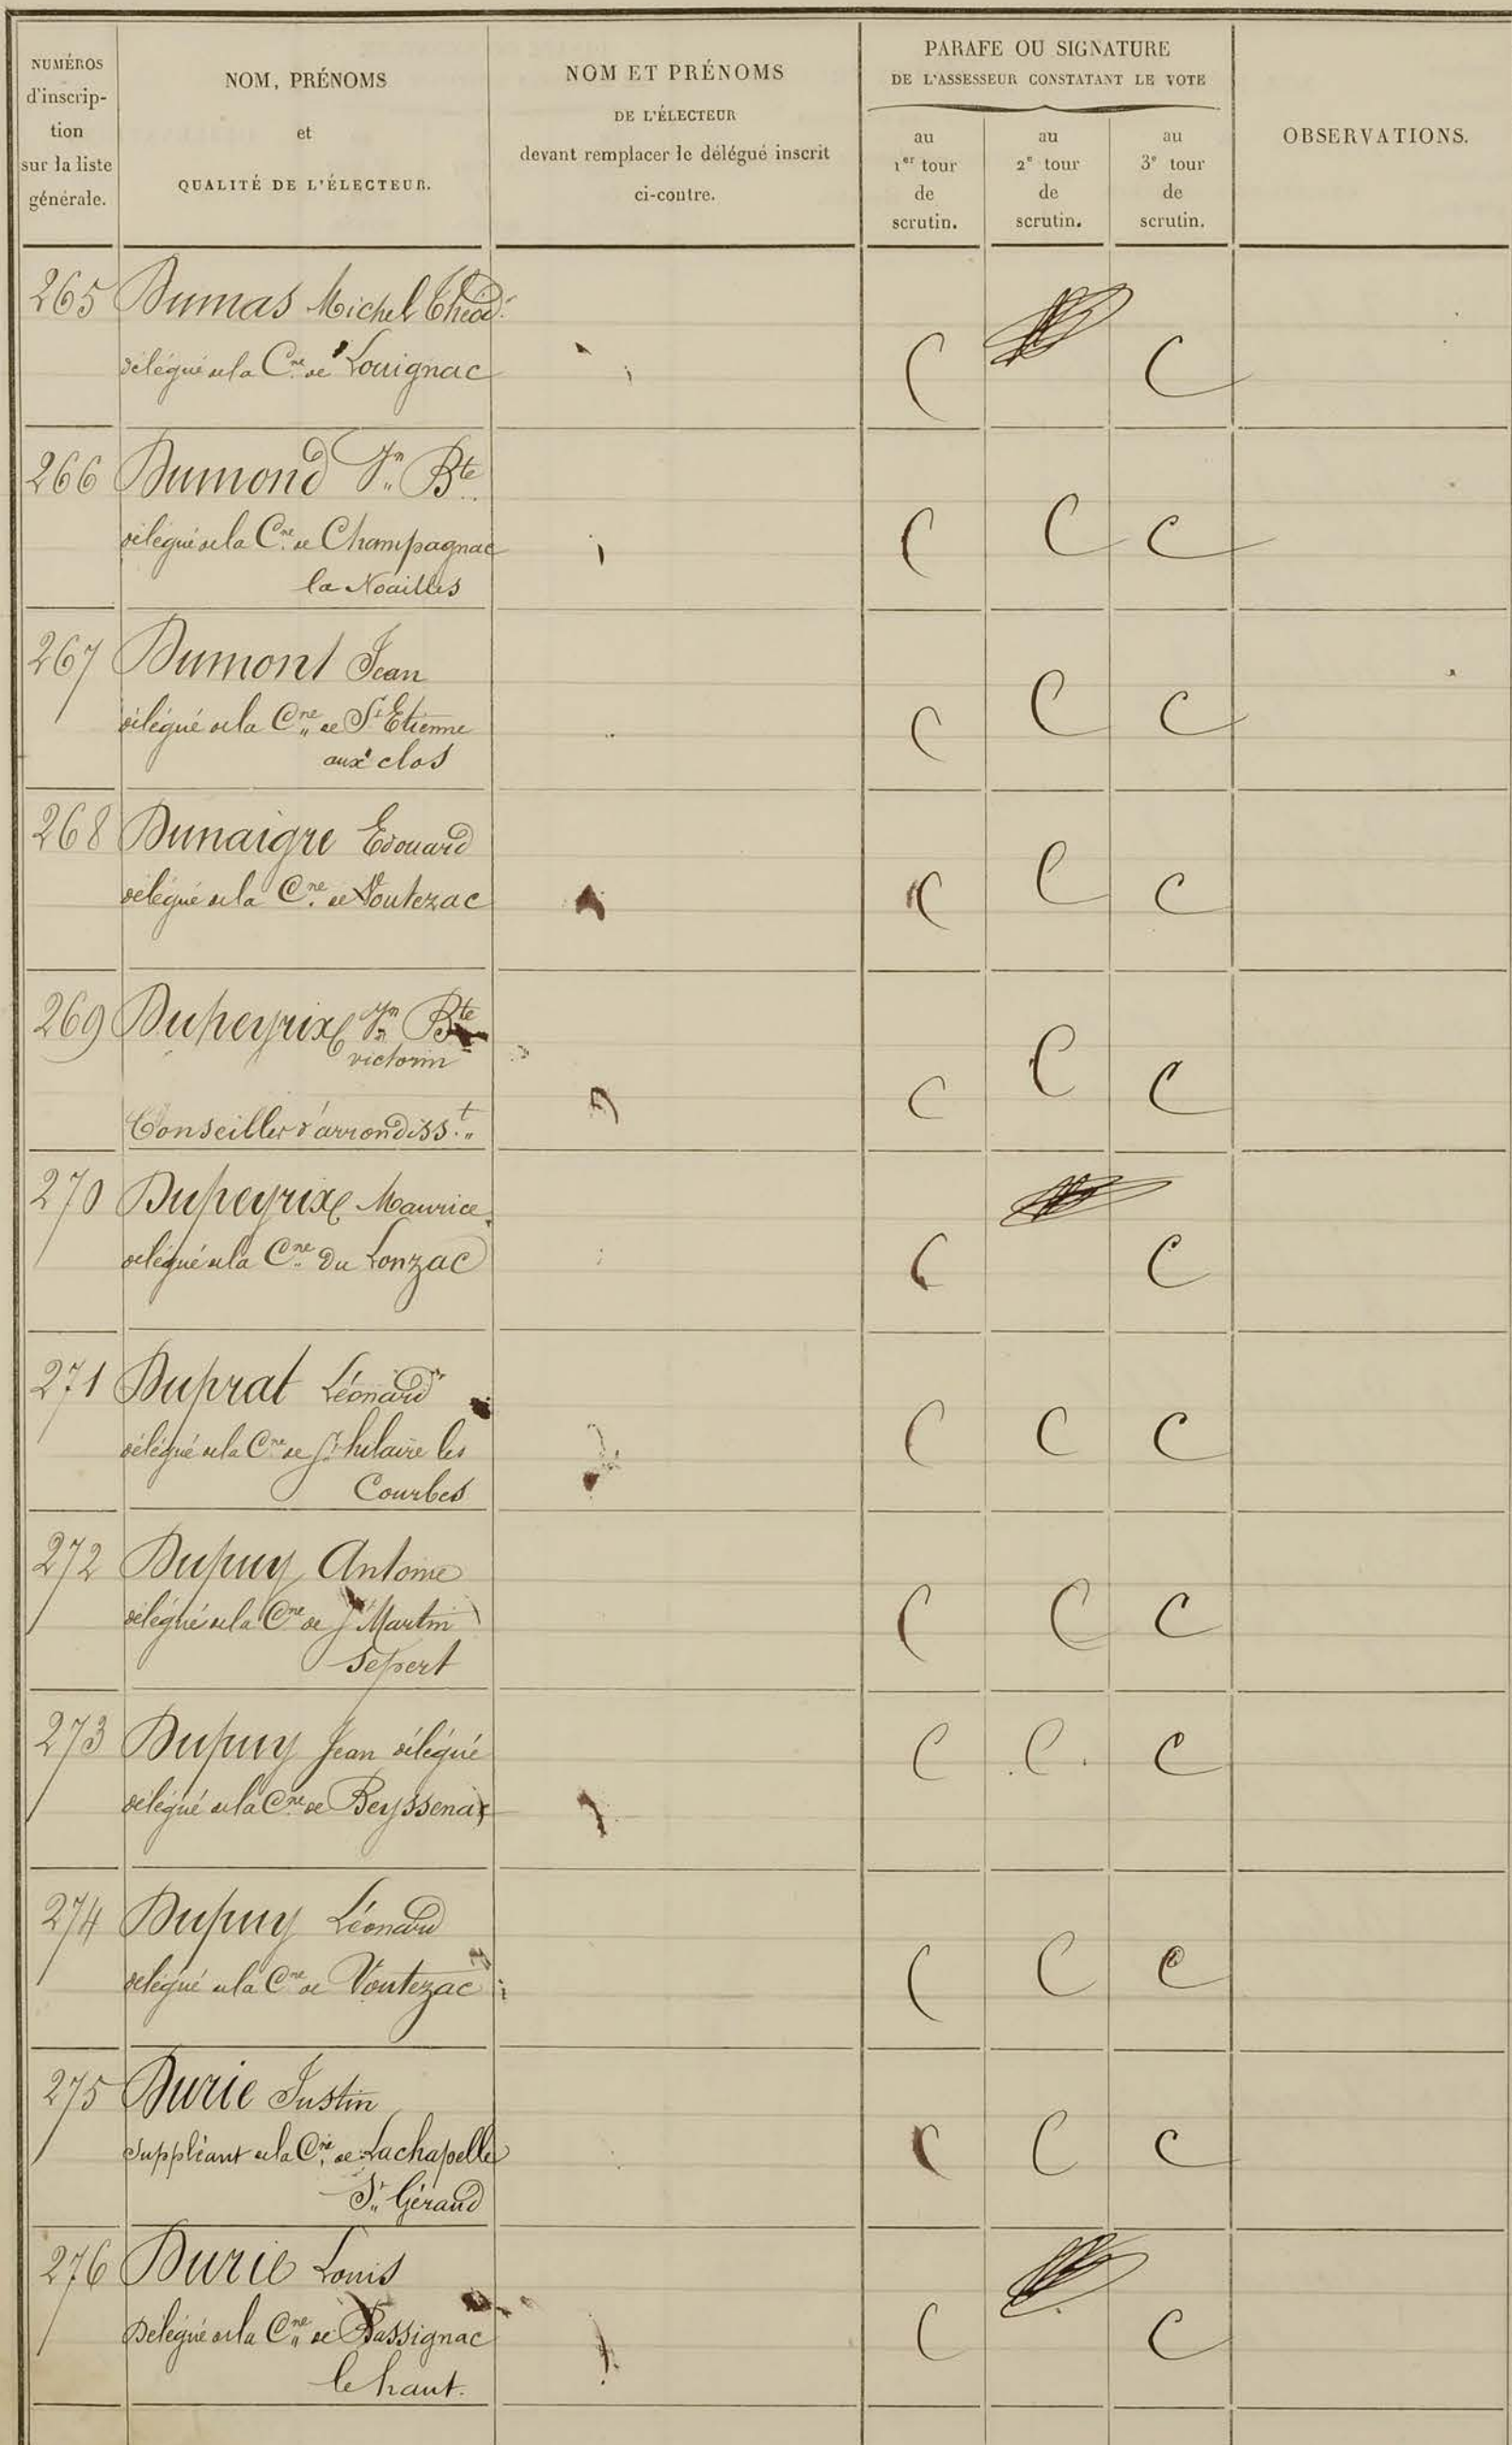 NUMÉROS
d'inscrip-
tion
sur la liste
générale.
NOM, PRÉNOMS
et
QUALITÉ DE L'ÉLECTEUR.
NOM ET PRÉNOMS
DE L'ÉLECTEUR
devant remplacer le délégué inscrit
ci-contre.
PARAFE OU SIGNATURE
DE L'ASSESSEUR CONSTATANT LE VOTE
au
1er tour
de
scrutin.
au
2e tour
de
scrutin.
au
3e tour
de
scrutin.
OBSERVATIONS.
265 Dumas Michel Théod.
délégué de la Cne de Louignac C C
266 Dumond Jn Bte
délégué de la Cne de Champagnac C C C
la Noailles
267 Dumont Jean
délégué de la Cne de St Etienne C C C
aux clos
268 Dunaigre Edouard
délégué de la Cne de Voutezac C C C
269 Dupeyrix Jn Bte
victorin
C C C
Conseiller d'arrondisst.
270 Dupeyrix Maurice
délégué de la Cne du Lonzac C C
271 Duprat Léonard
délégué de la Cne de St hilaire les C C C
Courbes
272 Dupuy Antoine
délégué de la Cne de St Martin C C C
Sepert
273 Dupuy Jean délégué C C C
délégué de la Cne de Beyssenac
274 Dupuy Léonard
délégué de la Cne de Voutezac C C C
275 Durie Justin
Suppléant de la Cne de Lachapelle C C C
St Géraud
276 Durie Louis
Délégué de la Cne de Bassignac C C
le haut.